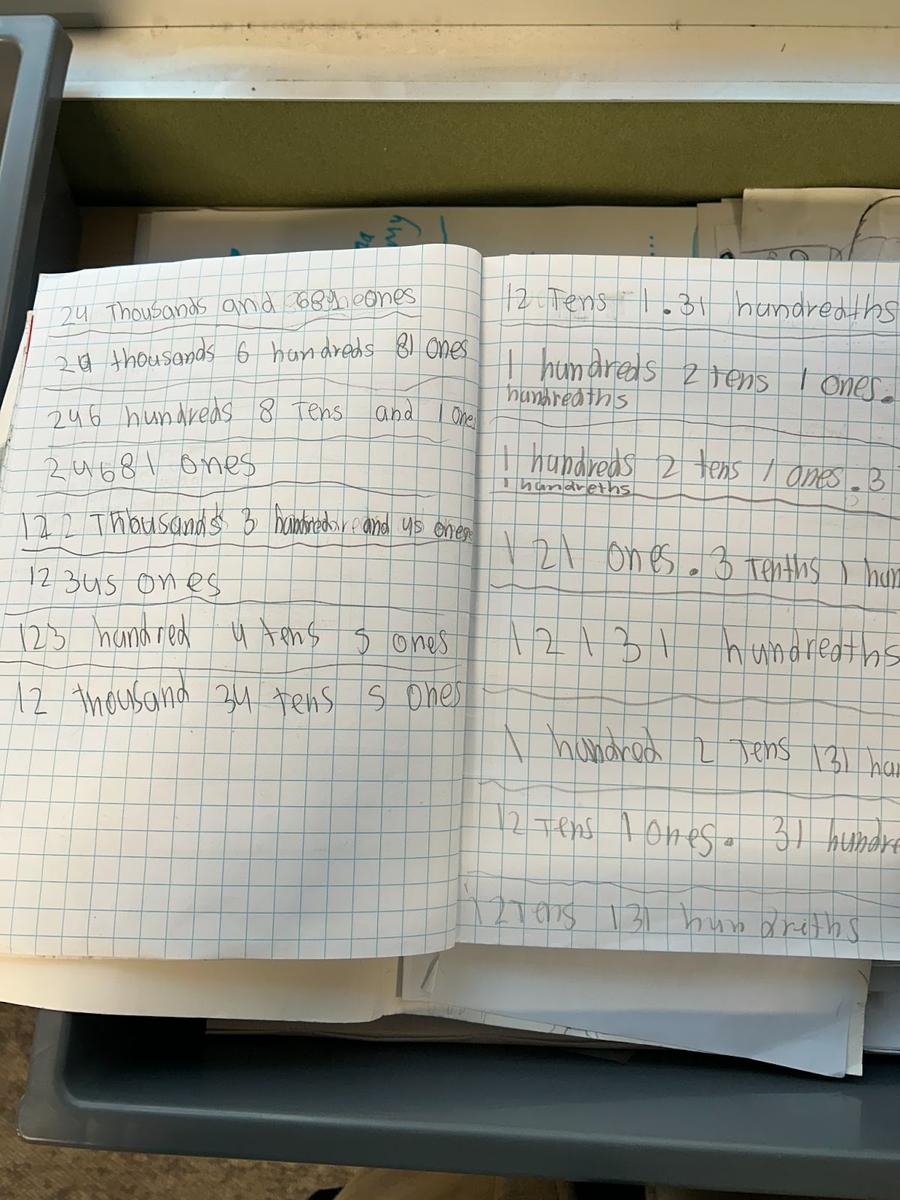 my
24 Thousands and 681 ones
24 thousands 6 hundreds 81 ones
246 hundreds 8 Tens and 1 ones
24681 ones
122 Thousands 3 and 45 ones
12345 ones
123 hundred 4 tens 5 ones
12 thousand 34 tens 5 ones
12 Tens 1.31 hundredths
1 hundreds 2 tens 1 ones.
hundredths
1 hundreds 2 tens 1 ones.3
1 hundreths
121 ones.3 Tenths 1 hun
12131 hundredths
1 hundred 2 Tens 131 hun
12 Tens 1 ones. 31 hundre
12 Tens 131 hundriths